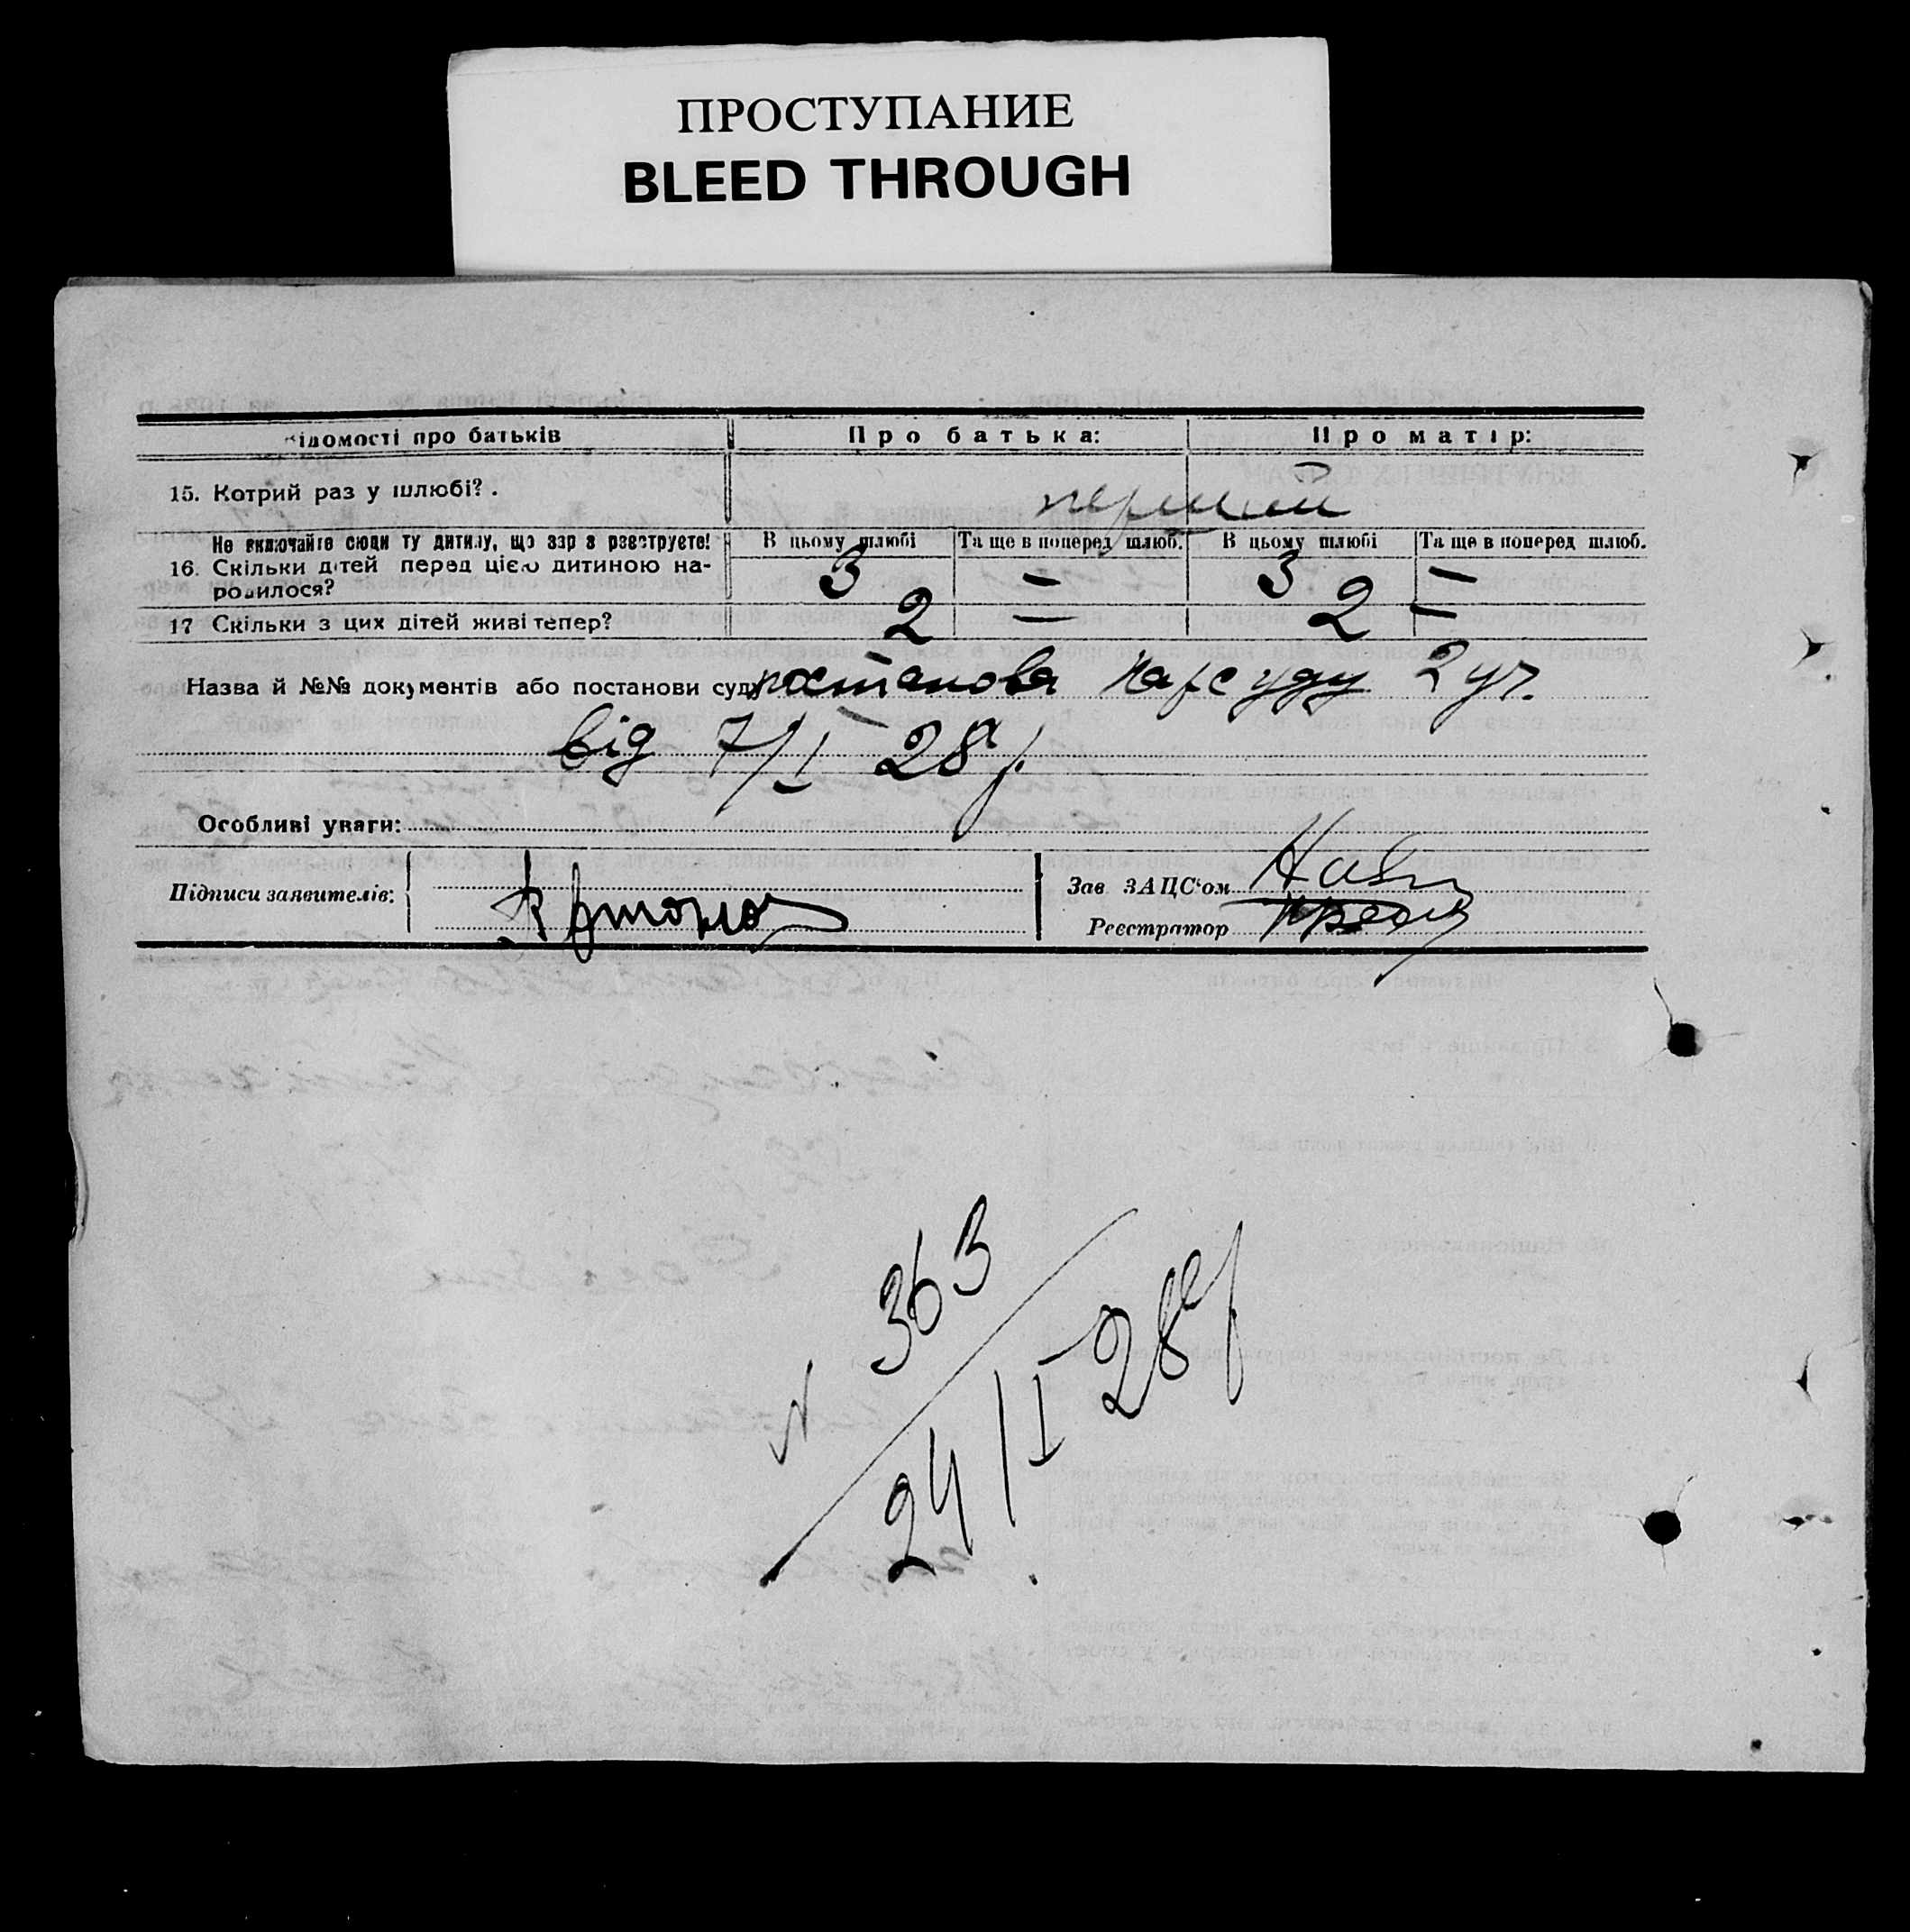 ПРОСТУПАНИЕ
BLEED THROUGH
ідомості про батьків
Про батька:
Про матір:
15. Котрий раз у шлюбі? .
перший
Не включайте сюди ту дитину, що зараз реєструєте!
16. Скільки дітей перед цією дитиною народилося?
В цьому шлюбі
Та ще в поперед шлюб.
В цьому шлюбі
Та ще в поперед шлюб.
3 — 3 —
17 Скільки з цих дітей живі тепер?
2 — 2 —
Назва й №№ документів або постанови суду постанова Нарсуду 2 уч.
від 7/I 28 р.
Особливі уваги:
Підписи заявителів:
Зав ЗАЦС'ом
Реєстратор
N 363
24/I 28 р